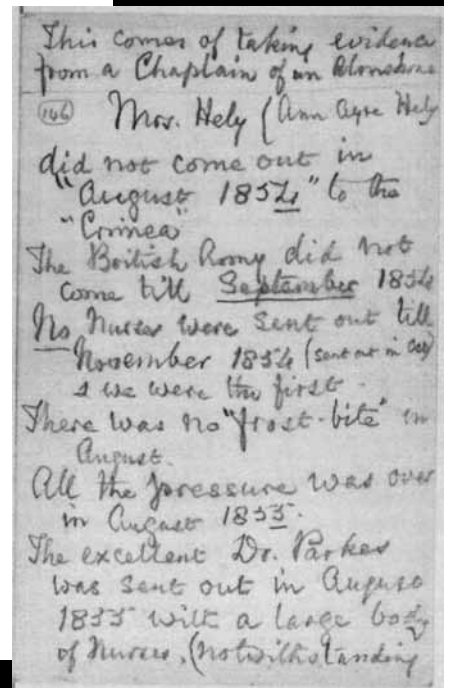 This comes of taking evidence
from a Chaplain of an
(146) Mrs. Hely (Ann Ayre Hely
did not come out in
"August 1854" to the
"Crimea"
The British Army did not
come till September 1854
No Nurses were sent out till
November 1854 (sent out in Oct)
& we were the first.
There was no "frost-bite" in
August.
All the pressure was over
in August 1855.
The excellent Dr. Parkes
was sent out in August
1855 with a large body
of Nurses, (notwithstanding